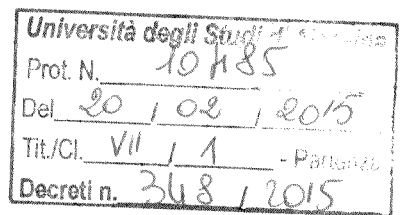 Università degli Studi di Messina
Prot. N. 10485
Del 20 / 02 / 2015
Tit./Cl. VII / 1 - Partenza
Decreti n. 348 / 2015